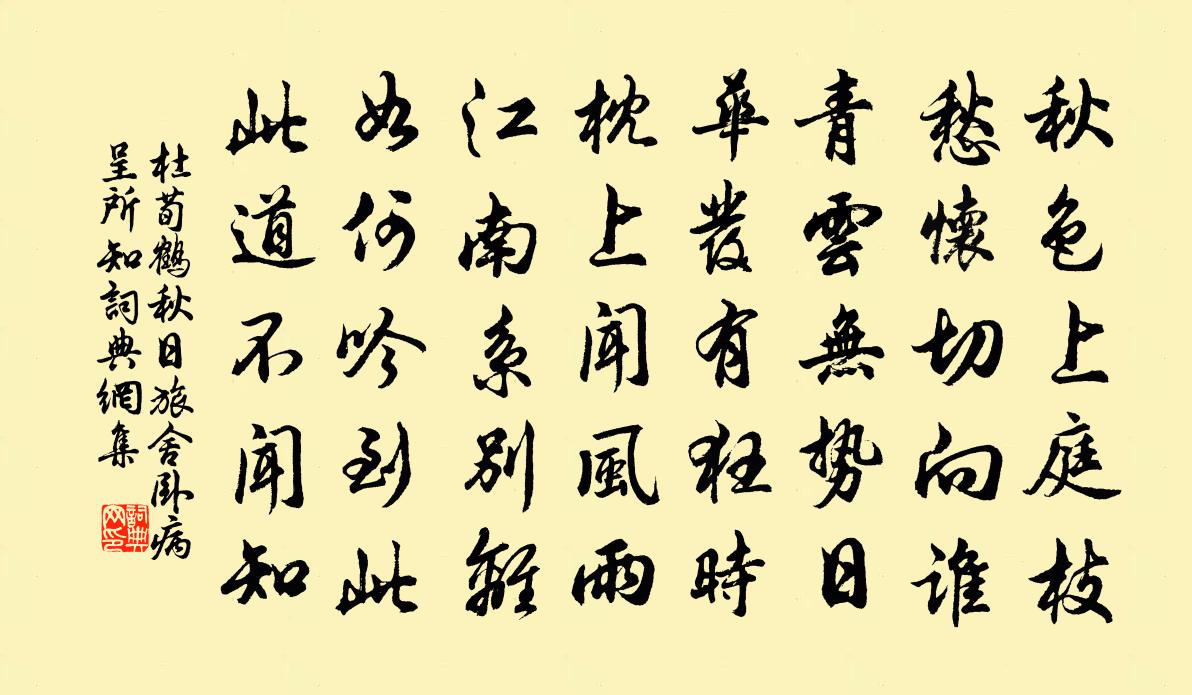 秋色上庭枝
愁懷切向誰
青雲無勢日
華發有狂時
枕上聞風雨
江南系別離
如何吟到此
此道不聞知
杜荀鶴秋日旅舍臥病
呈所知詞典網集
詞典网印